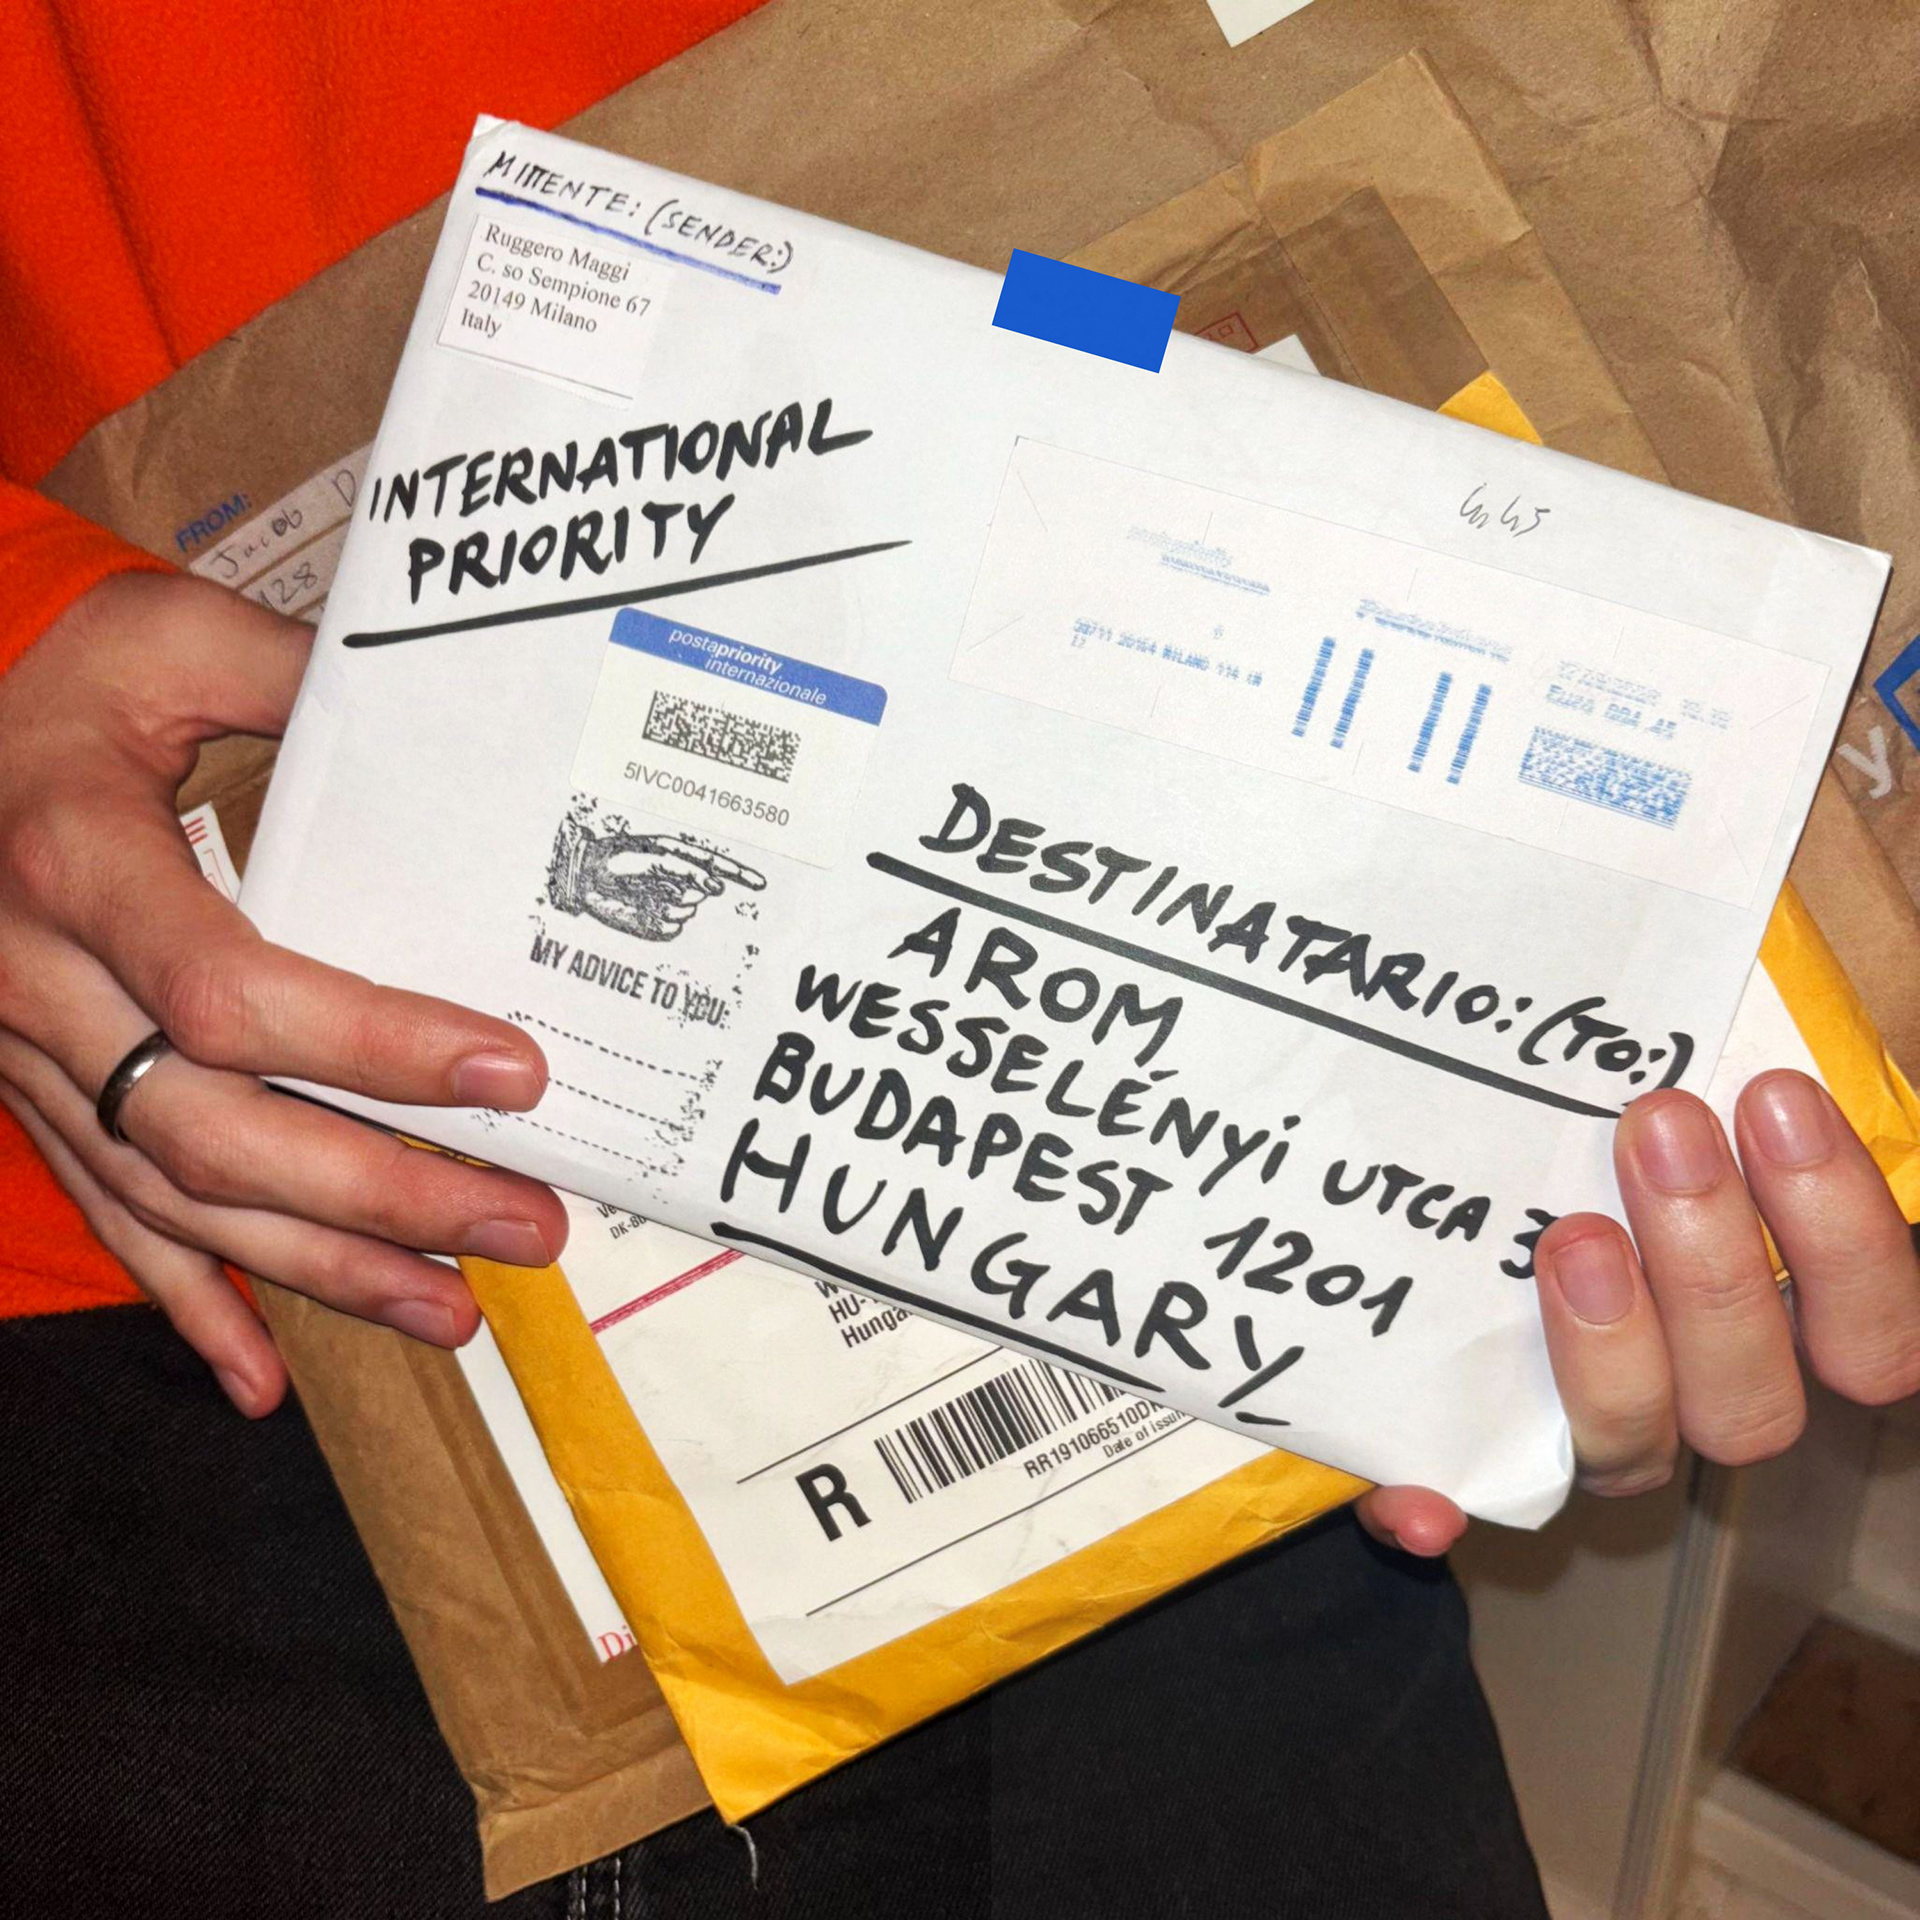 MITTENTE: (SENDER:)
Ruggero Maggi
C. so Sempione 67
20149 Milano
Italy
INTERNATIONAL
PRIORITY
postapriority
internazionale
5IVC0041663580
MY ADVICE TO YOU:
DESTINATARIO: (TO:)
AROM
WESSELÉNYI UTCA 3
BUDAPEST 1201
HUNGARY
FROM:
Jacob D
128
DK-80
HU-
Hunga
R
RR191066510D
Date of issu
Di
y